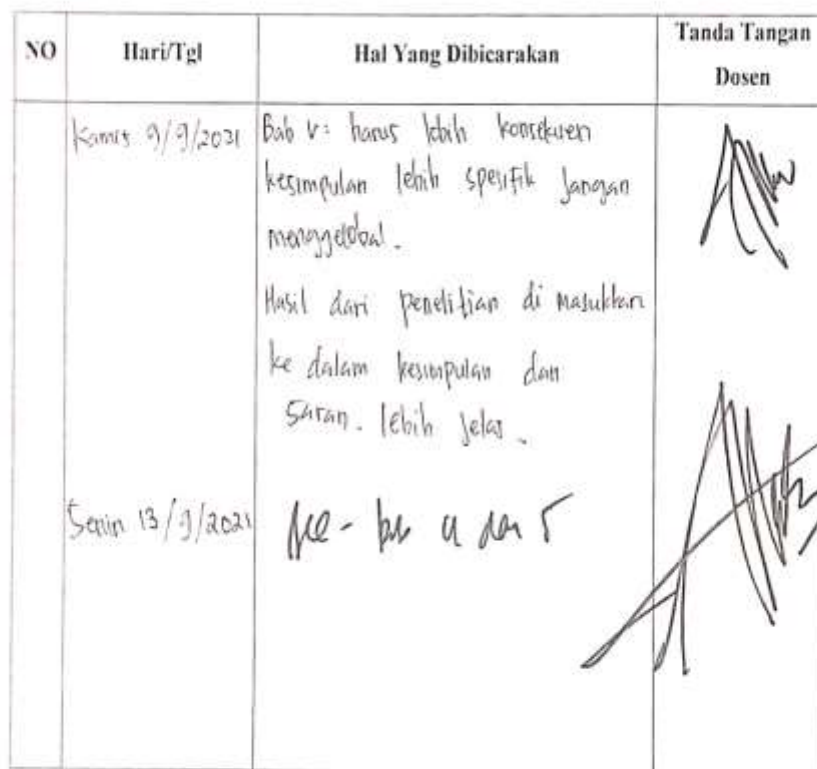 NO Hari/Tgl Hal Yang Dibicarakan Tanda Tangan
Dosen
Kamis 9/9/2021 Bab V: harus lebih konsekuen
kesimpulan lebih spesifik jangan
menggelobal.
Hasil dari penelitian di masukkan
ke dalam kesimpulan dan
Saran. lebih jelas.
Senin 13/9/2021 dan 5